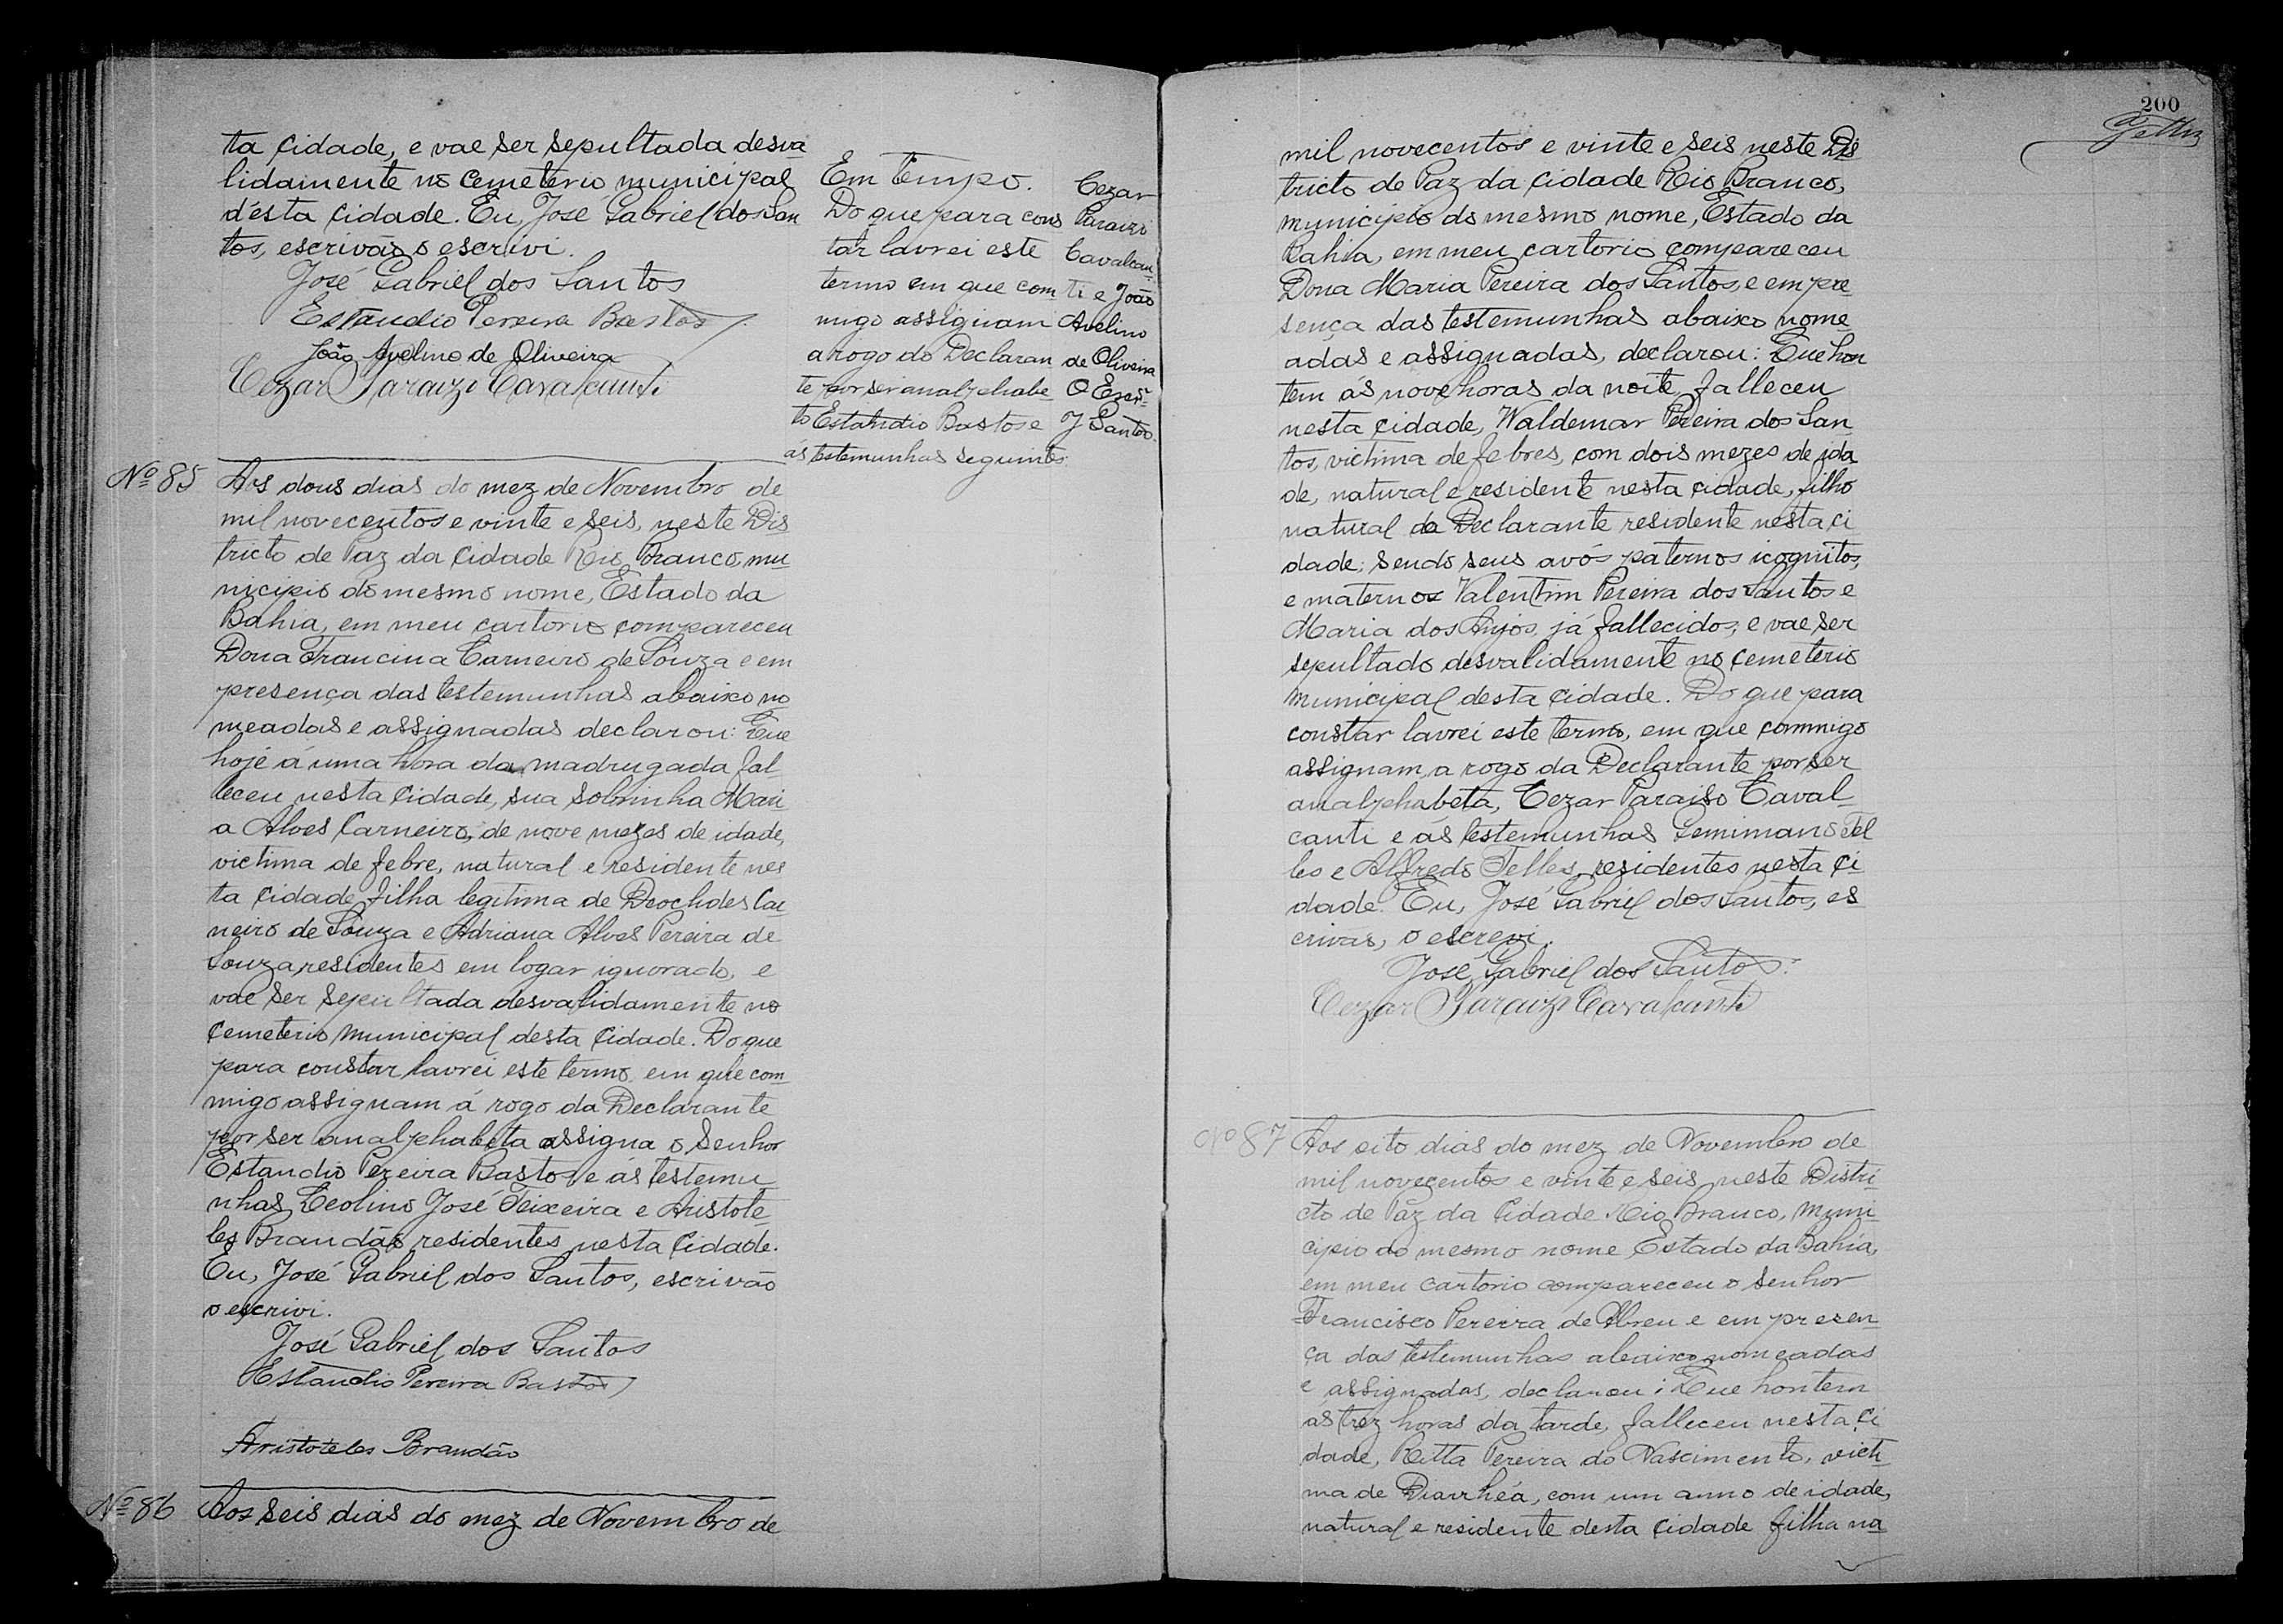 ta cidade, e vae ser sepultada desva
lidamente no cemeterio municipal
d'ésta cidade. Eu, José Gabriel dos San
tos, escrivão o escrivi.
José Gabriel dos Santos
Estaudio Pereira Bastos
João Avelino de Oliveira
Cezar Paraizo Cavalcanti
Em tempo.
Do que para cons
tar lavrei este
termo em que com
migo assignam
a rogo do Declaran
te por ser analphabe
to Estaudio Bastos e
ás testemunhas seguintes
Cezar
Paraizo
Cavalcan
ti e João
Avelino
de Oliveira
O Escr.
J Santos.
Nº 85 Aos dous dias do mez de Novembro de
mil novecentos e vinte e seis, neste Dis
tricto de Paz da Cidade Rio Branco, mu
nicipio do mesmo nome, Estado da
Bahia, em meu cartorio compareceu
Dona Francina Carneiro de Souza e em
presença das testemunhas abaixo no
meadas e assignadas declarou: Que
hoje á uma hora da madrugada fal
leceu nesta cidade, sua sobrinha Mari
a Alves Carneiro, de nove mezes de idade,
victima de febre, natural e residente nes
ta cidade filha legitima de Deoclides Car
neiro de Souza e Adriana Alves Pereira de
Souza residentes em logar ignorado, e
vae ser sepultada desvalidamente no
cemeterio municipal desta cidade. Do que
para constar lavrei este termo em que com
migo assignam á rogo da Declarante
por ser analphabeta assigna o Senhor
Estaudio Pereira Bastos e ás testemu
nhas Leolino José Teixeira e Aristote
les Brandão residentes nesta cidade.
Eu, José Gabriel dos Santos, escrivão
o escrivi.
José Gabriel dos Santos
Estaudio Pereira Bastos
Aristoteles Brandão
Nº 86 Aos seis dias do mez de Novembro de
200
mil novecentos e vinte e seis neste Dis
tricto de Paz da cidade Rio Branco,
municipio do mesmo nome, Estado da
Bahia, em meu cartorio compareceu
Dona Maria Pereira dos Santos, e em pre
sença das testemunhas abaixo nome
adas e assignadas, declarou: Que hon
tem ás nove horas da noite, falleceu
nesta cidade, Waldemar Pereira dos San
tos, victima de febres, com dois mezes de ida
de, natural e residente nesta cidade, filho
natural da Declarante residente nesta ci
dade; sendo seus avós paternos icognitos,
e maternos Valentim Pereira dos Santos e
Maria dos Anjos, já fallecidos, e vae ser
sepultado desvalidamente no cemeterio
municipal desta cidade. Do que para
constar lavrei este termo, em que commigo
assignam, a rogo da Declarante por ser
analphabeta, Cezar Paraiso Caval
canti e ás testemunhas Geminiano Tel
les e Alfredo Telles, residentes nesta ci
dade. Eu, José Gabriel dos Santos, es
crivão, o escrevi.
José Gabriel dos Santos.
Cezar Paraizo Cavalcanti
Nº 87 Aos oito dias do mez de Novembro de
mil novecentos e vinte e seis, neste Distri
cto de Paz da Cidade Rio Branco, Muni
cipio do mesmo nome Estado da Bahia,
em meu cartorio compareceu o Senhor
Francisco Pereira de Abreu e em presen
ça das testemunhas abaixo nomeadas
e assignadas, declarou: Que hontem
ás trez horas da tarde, falleceu nesta ci
dade, Ritta Pereira do Nascimento, victi
ma de Diarrhéa, com um anno de idade,
natural e residente desta cidade filha na